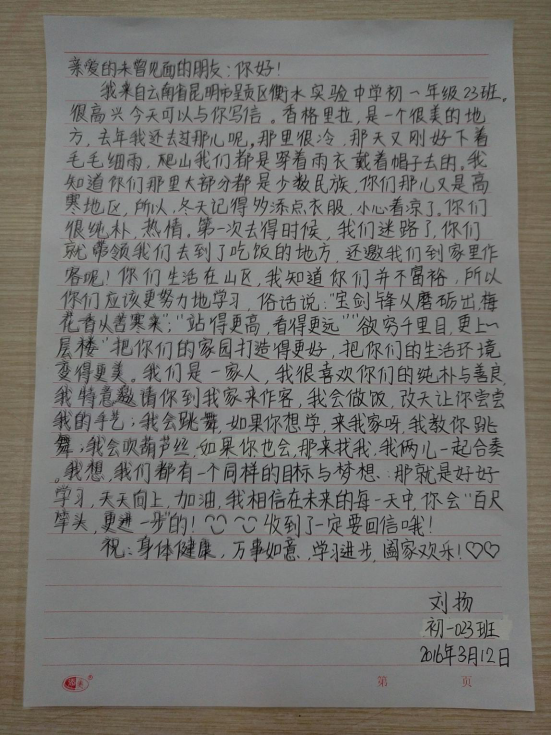 亲爱的未曾见面的朋友：你好！
我来自云南省昆明市呈贡区衡水实验中学初一年级23班。
很高兴今天可以与你写信。香格里拉，是一个很美的地
方，去年我还去过那儿呢。那里很冷，那天又刚好下着
毛毛细雨，爬山我们都是穿着雨衣戴着帽子去的。我
知道你们那里大部分都是少数民族，你们那儿又是高
寒地区，所以，冬天记得多添点衣服，小心着凉了。你们
很纯朴，热情。第一次去得时候，我们迷路了，你们
就带领我们去到了吃饭的地方，还邀我们到家里作
客呢！你们生活在山区，我知道你们并不富裕，所以
你们应该更努力地学习，俗话说："宝剑锋从磨砺出，梅
花香从苦寒来"；"站得更高，看得更远""欲穷千里目，更上一
层楼"把你们的家园打造得更好，把你们的生活环境
变得更美。我们是一家人，我很喜欢你们的纯朴与善良，
我特意邀请你到我家来作客，我会做饭，改天让你尝尝
我的手艺；我会跳舞，如果你想学，来我家呀，我教你跳
舞；我会吹葫芦丝，如果你也会，那来找我，我俩儿一起合奏
。我想，我们都有一个同样的目标与梦想：那就是好好
学习，天天向上，加油，我相信在未来的每一天中，你会"百尺
竿头，更进一步"的！收到了一定要回信哦！
祝：身体健康，万事如意，学习进步，阖家欢乐！♡♡
刘扬
初一023班
2016年3月12日
第 页